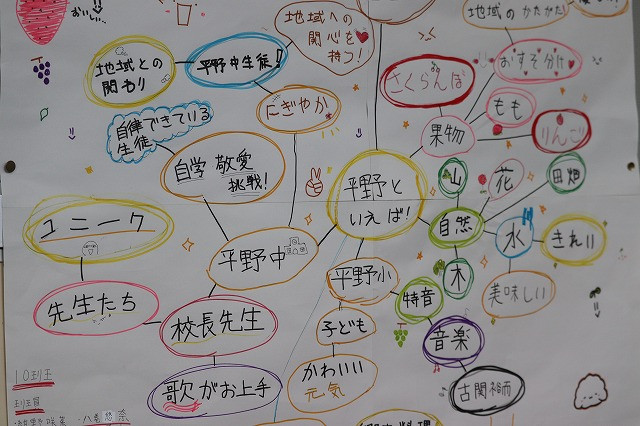 おいしい
地域との
関わり
平野中生徒!
地域への
関心を
持つ!
地域の かたがた
おすそ分け
さくらんぼ
もも
りんご
果物
にぎやか
自律できている
生徒
自学 敬愛
挑戦!
平野と
いえば!
山
花
田畑
自然
水
きれい
木
美味しい
ユニーク
平野中
平野小
特音
先生たち
校長先生
子ども
音楽
歌がお上手
かわいい
元気
古関裕而
10班
班員